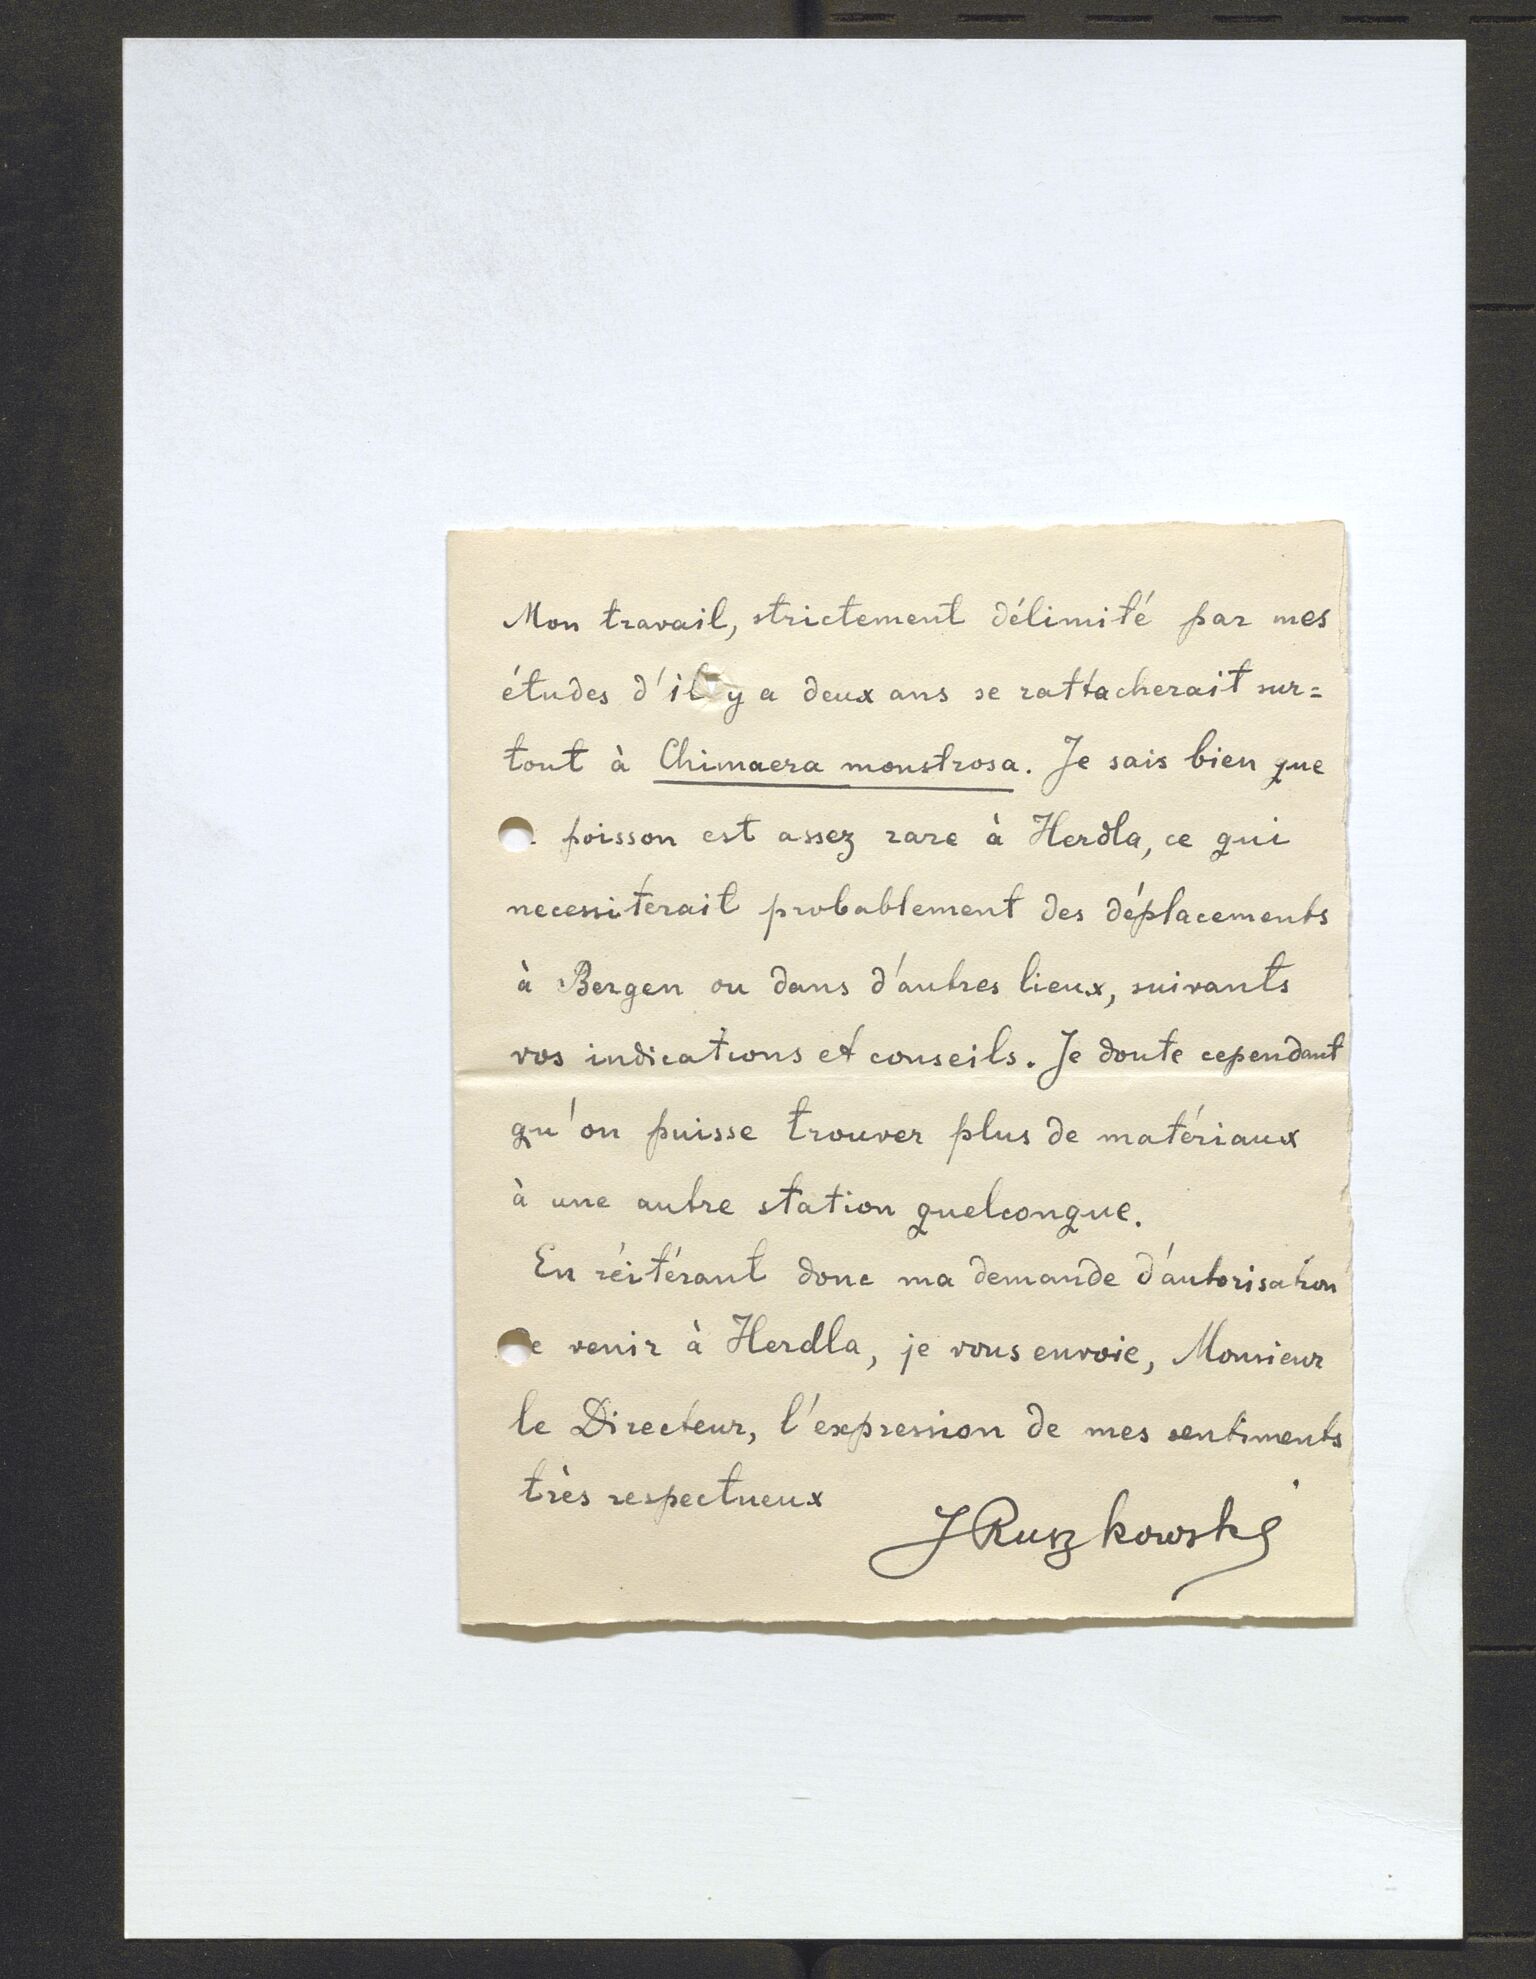 Mon travail, strictement délimité par mes
études d'il y a deux ans se rattacherait sur=
tout à Chimaera monstrosa. Je sais bien que
poisson est assez rare à Herdla, ce qui
necessiterait probablement des déplacements
à Bergen ou dans d'autres lieux, suivants
vos indications et conseils. Je doute cependant
qu'on puisse trouver plus de matériaux
à une autre station quelconque.
En réitérant donc ma demande d'autorisation
de venir à Herdla, je vous envoie, Monsieur
le Directeur, l'expression de mes sentiments
très respectueux
J Ruszkowski